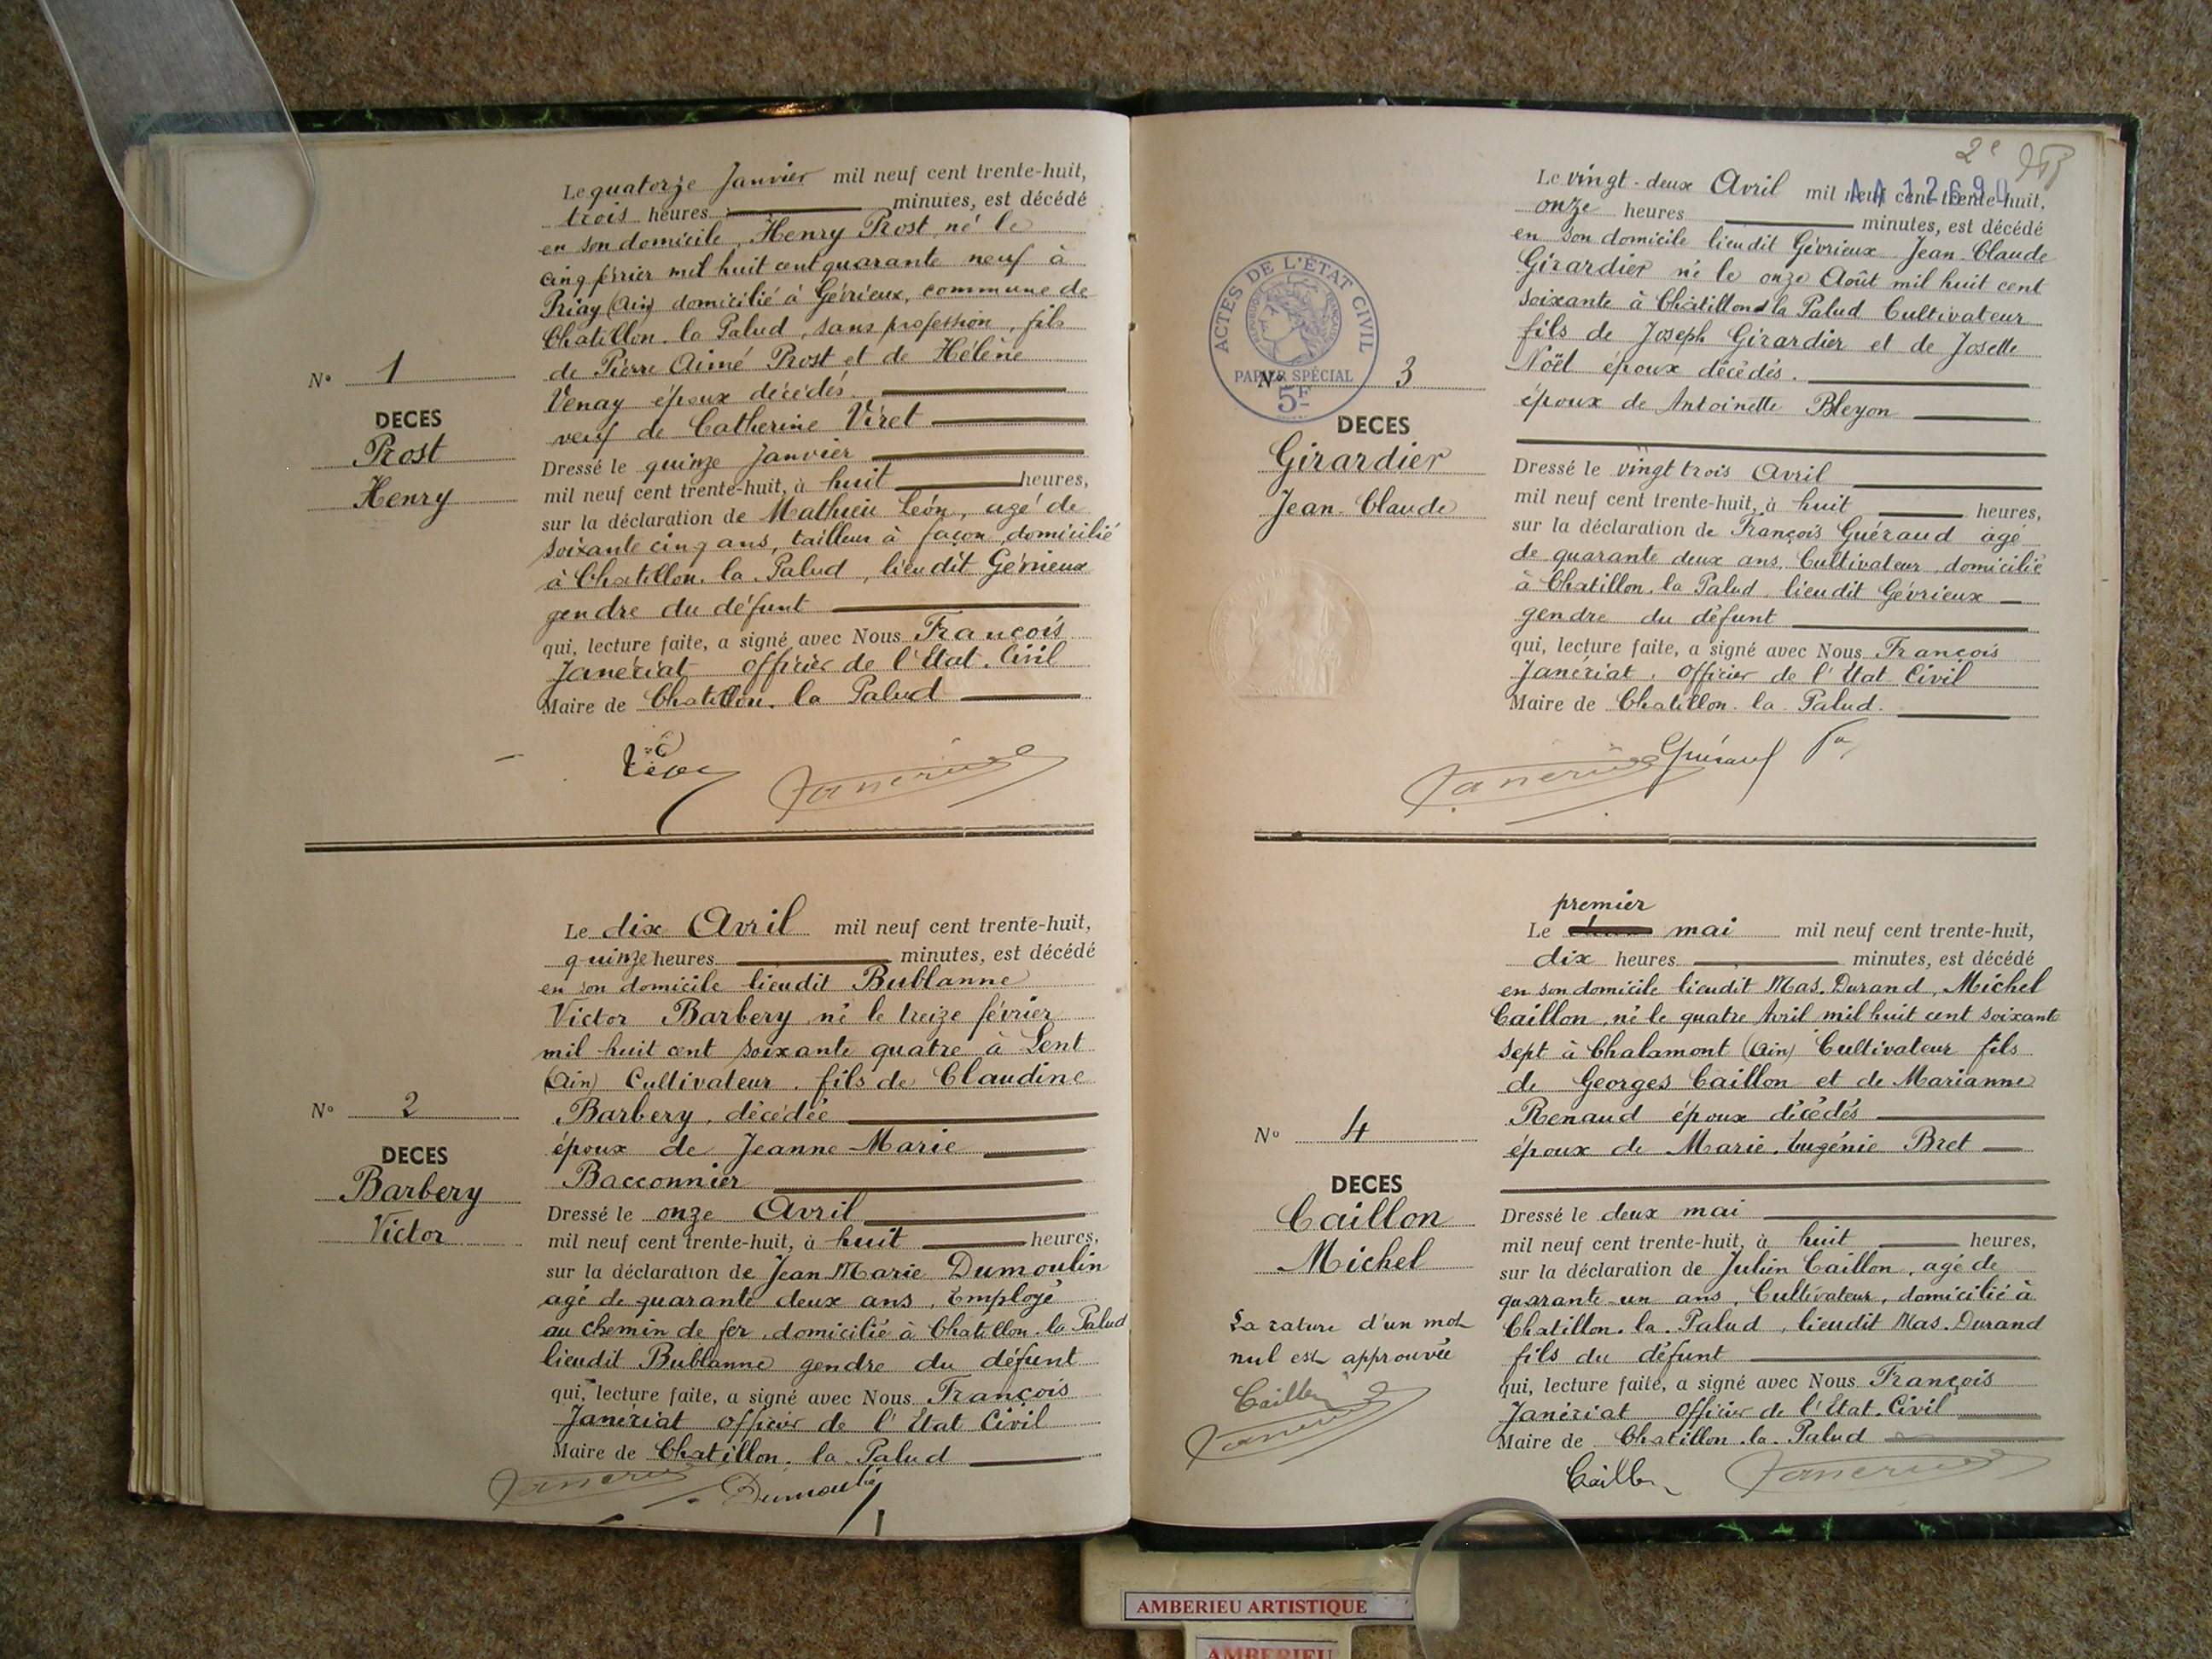 Le quatorze Janvier mil neuf cent trente-huit,
trois heures minutes, est décédé
en son domicile, Henry Prost, né le
cinq février mil huit cent quarante neuf à
Priay (Ain) domicilié à Gévrieux, commune de
Chatillon. la Palud, sans profession, fils
de Pierre Aimé Prost et de Hélène
Venay époux décédés.
veuf de Catherine Viret
Dressé le quinze Janvier
mil neuf cent trente-huit, à huit heures,
sur la déclaration de Mathieu Léon, agé de
soixante cinq ans, tailleur à façon, domicilié
à Chatillon. la Palud, lieudit Gévrieux
gendre du défunt
qui, lecture faite, a signé avec Nous François
Janériat officier de l'Etat. Civil
Maire de Chatillon. la Palud
N° 1
DECES
Prost
Henry
Le dix Avril mil neuf cent trente-huit,
quinze heures minutes, est décédé
en son domicile lieudit Bublanne
Victor Barbery, né le treize février
mil huit cent soixante quatre à Lent
(Ain) Cultivateur. fils de Claudine
Barbery, décédée
époux de Jeanne-Marie
Bacconnier
Dressé le onze Avril
mil neuf cent trente-huit, à huit heures,
sur la déclaration de Jean Marie Dumoulin
agé de quarante deux ans, Employé
au chemin de fer, domicilié à Chatillon. la Palud
lieudit Bublanne gendre du défunt
qui, lecture faite, a signé avec Nous François
Janériat officier de l'Etat Civil
Maire de Chatillon. la Palud
Dumoulin
N° 2
DECES
Barbery
Victor
2e
Le vingt-deux Avril mil neuf cent trente-huit,
onze heures minutes, est décédé
en son domicile lieudit Gévrieux Jean Claude
Girardier né le onze Août mil huit cent
soixante à Châtillon la Palud Cultivateur
fils de Joseph Girardier et de Josette
Noël époux décédés.
époux de Antoinette Bleyon
Dressé le vingt trois Avril
mil neuf cent trente-huit, à huit heures,
sur la déclaration de François Guéraud agé
de quarante deux ans, Cultivateur, domicilié
à Chatillon. la Palud. lieudit Gévrieux
gendre du défunt
qui, lecture faite, a signé avec Nous François
Janériat, Officier de l'Etat Civil
Maire de Chatillon. la Palud.
ACTES DE L'ÉTAT CIVIL
PAPIER SPÉCIAL
5F
N° 3
DECES
Girardier
Jean-Claude
premier
Le mai mil neuf cent trente-huit,
dix heures minutes, est décédé
en son domicile lieudit Mas. Durand, Michel
Caillon, né le quatre Avril mil huit cent soixante
sept à Chalamont (Ain) Cultivateur fils
de Georges Caillon et de Marianne
Renaud époux décédés
époux de Marie. Eugénie Bret
Dressé le deux mai
mil neuf cent trente-huit, à huit heures,
sur la déclaration de Julien Caillon, agé de
quarante un ans, Cultivateur, domicilié à
Chatillon. la. Palud, lieudit Mas. Durand
fils du défunt
qui, lecture faite, a signé avec Nous François
Janériat Officier de l'Etat. Civil
Maire de Chatillon. la. Palud
Caillon
N° 4
DECES
Caillon
Michel
La rature d'un mot
nul est approuvée
Caillon
AMBERIEU ARTISTIQUE
AMBERIEU